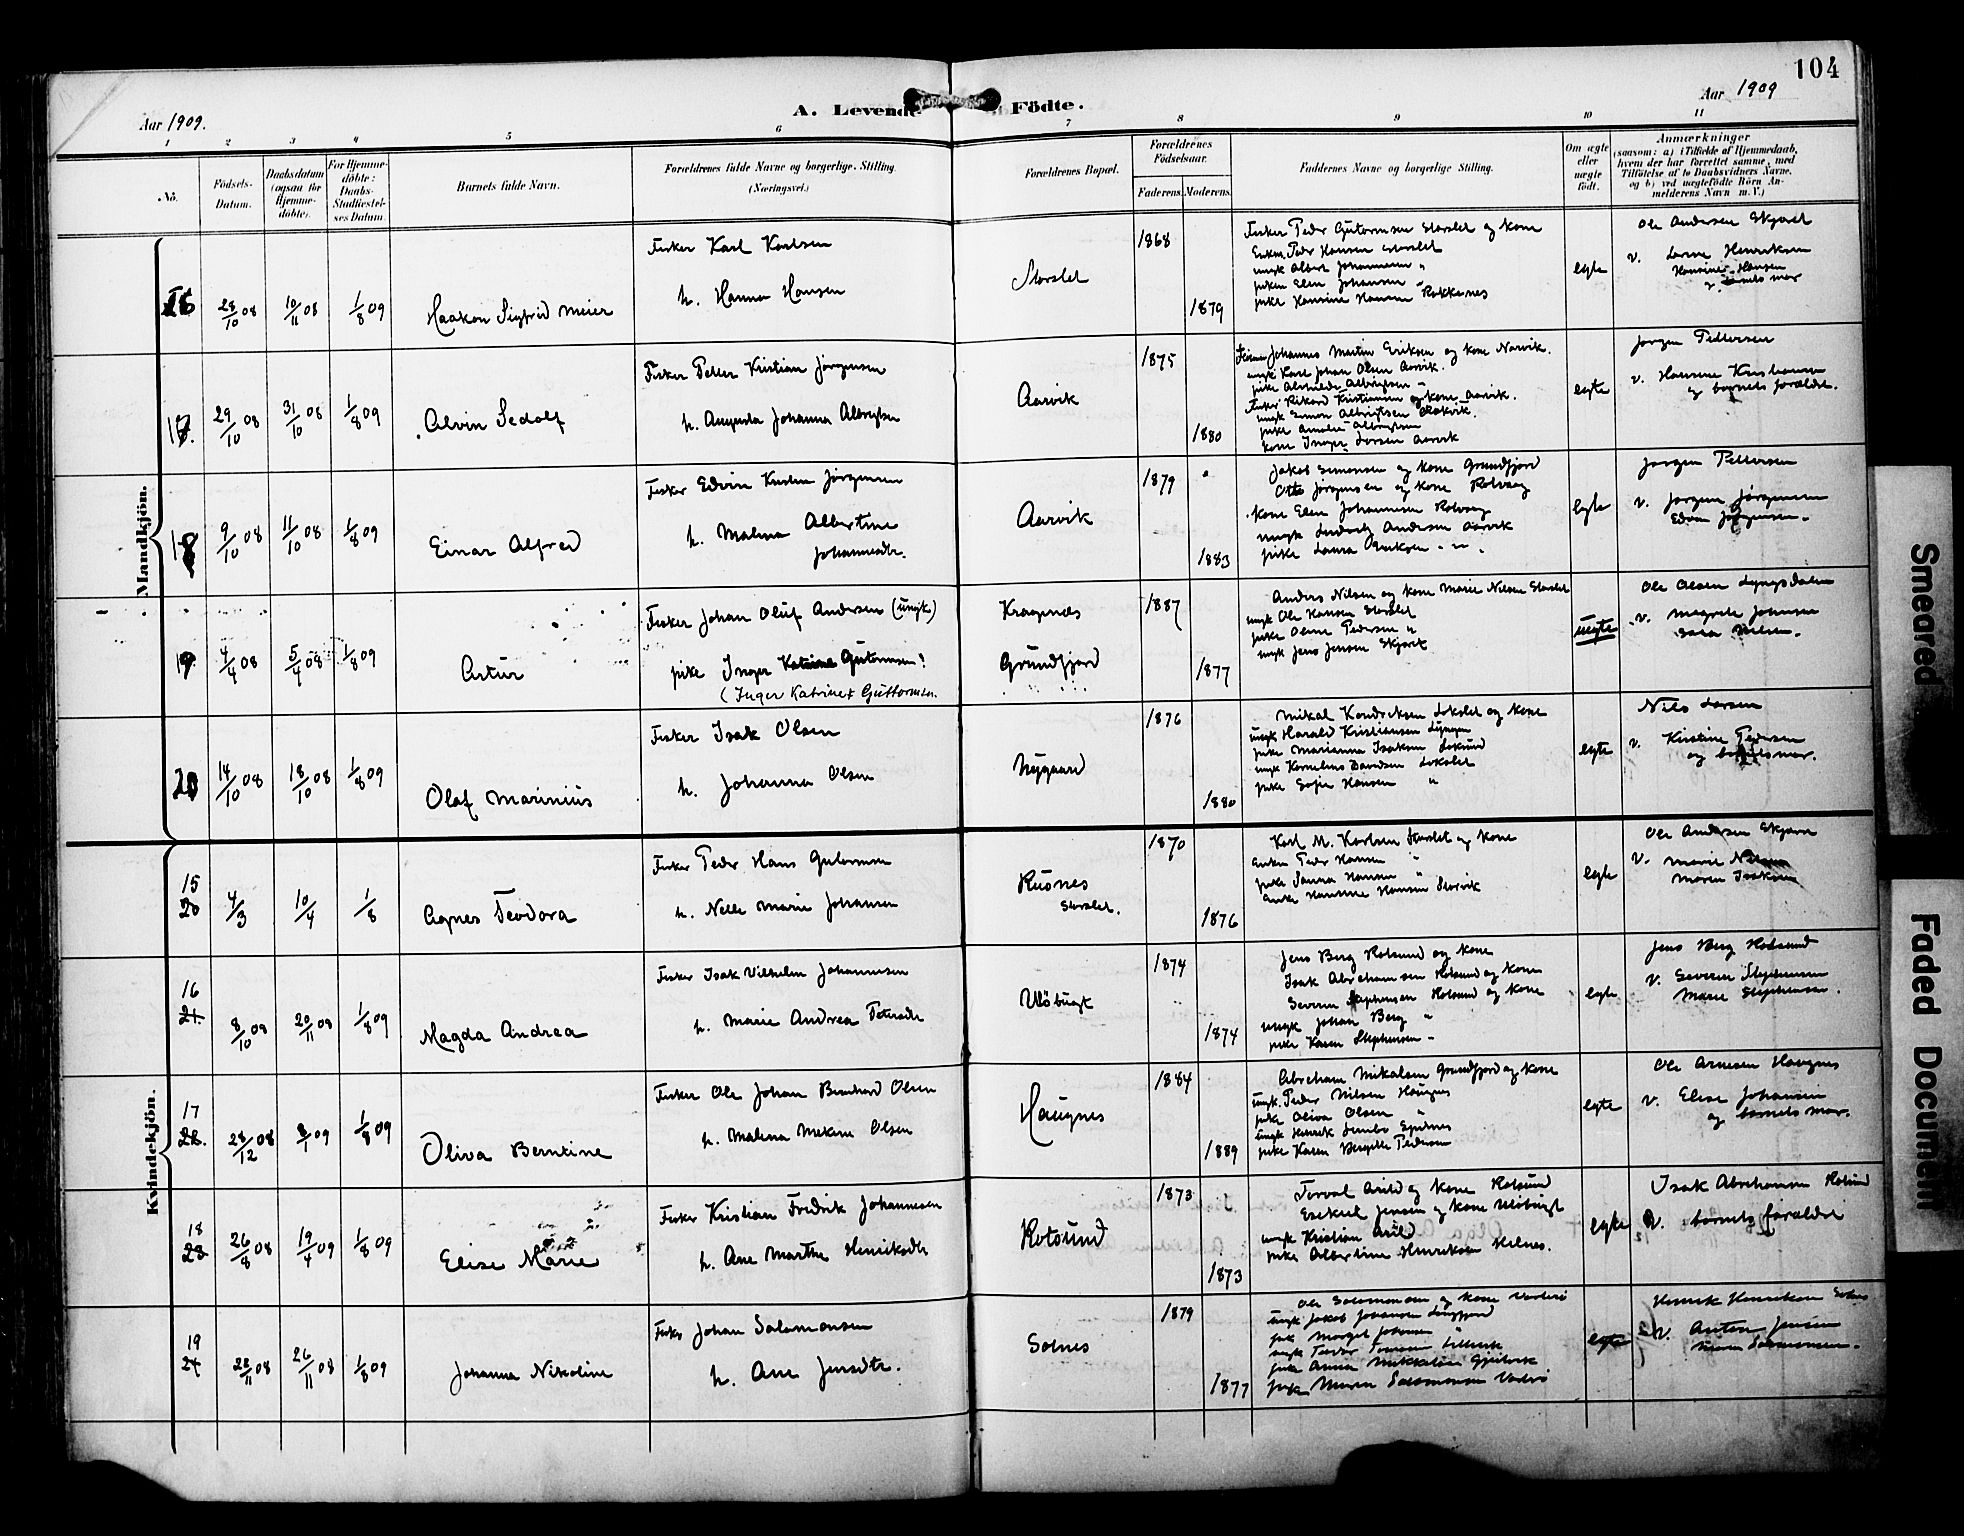 104
Aar 1909.
A. Levende Födte.
Aar 1909
1 2 3 4 5 6 7 8 9 10 11
No.
Födsels-Datum.
Daabsdatum (ogsaa for Hjemme-döbte).
For Hjemme-döbte: Daabs-Stadfæstel-ses Datum.
Barnets fulde Navn.
Forældrenes fulde Navne og borgerlige Stilling.
(Næringsvei.)
Forældrenes Bopæl.
Forældrenes Födselsaar.
Faderens. Moderens.
Faddernes Navne og borgerlige Stilling.
Om ægte eller uægte födt.
Anmærkninger
(saasom: a) i Tilfælde af Hjemmedaab, hvem der har forrettet samme, med Tilföielse af to Daabsvidners Navne, og b) ved uægtefödte Börn An-melderens Navn m. V.)
Mandkjön.
16
28/10 08 10/11 08 1/8 09
Haakon Sigfred Meier
Fisker Karl Karlsen
h. Hanna Hansen
Storslet
1868
1879
Fisker Peder Gutormsen Storslet og kone
Enkm. Peder Hansen Storslet
ungk Albert Johannesen "
piken Elen Johansen "
pike Hansine Hansen Rakkenes
egte
Ole Andersen Skjovet
v. Larine Henriksen
Hansine Hansen
17.
29/10 08 31/10 08 1/8 09
Alvin Sedolf
Fisker Petter Kristian Jörgensen
h. Augusta Johanna Albrigtsen
Aarvik
1875
1880
Johannes Martin Eriksen og kone Narvik.
ungk Karl Johan Olsen Aarvik.
Fisker Rikard Kristiansen og kone Aarvik.
ungk Simon Albrigtsen
pike Amalie Albrigtsen
kone Inger Larsen Aarvik
egte
Jörgen Pettersen
v. Hansine Kristiansen
og barnets forældre.
18
9/10 08 11/10 08 1/8 09
Einar Alfred
Fisker Edvin Kristen Jörgensen
h. Malena Albertine
Johannesdtr.
Aarvik
1879
1883
Jakob Simonsen og kone Grundfjord
Otto Jörgensen og kone Rotvaag
kone Elen Johannesen Rotvaag
ungk Ludvig Andersen Aarvik
pike Laura Eriksen " "
egte
Jörgen Pettersen
v. Jörgen Jörgensen
Edvin Jörgensen.
19
4/4 08 5/4 08 1/8 09
Artur
Fisker Johan Oluf Andersen (ungk)
pike Inger Katrine Gutormsen!
(Inger Katrine Guttormsen.
Kraagenæs
Grundfjord
1887
1877
Anders Nilsen og kone Marie Nilsen Storslet
ungk Ole Hansen Storslet
pike Oline Pedersen "
ungk Jens Jensen Skjovet
uegte
Ole Olsen Lyngsdalen
v. Magrete Johansen
Sara Nilsen.
20
14/10 08 18/10 08 1/8 09
Olaf Marinius
Fisker Isak Olsen
h. Johanna Olsen
Nygaard
1876
1880
Mikal Kondriksen Lokslet og kone
ungk Harald Kristiansen Lyngen
pike Marianna Isaksen Loksund
ungk Kornelius Davidsen Lokslet
pike Sofie Hansen "
egte
Nils Larsen
v. Kirstine Pedersen
og barnets mor.
Kvindekjön.
15
20
4/3 10/4 1/8
Agnes Teodora
Fisker Peder Hans Gutormsen
h. Nelle Marie Johansen
Rusnes
Storslet.
1870
1876
Karl M. Karlsen Storslet og kone
Enken Peder Hansen "
pike Sanna Hansen "
enke Hansine Hansen Storvik
egte
Ole Andersen Skjovet
v. Marie Nilsen
Maren Isaksen
16
21.
8/10 08 20/11 08 1/8 09
Magda Andrea
Fisker Isak Vilhelm Johannesen
h. Marie Andrea Petersdtr
Ulöbugt
1874
1874
Jens Berg Rotsund og kone
Isak Abrahamsen Rotsund og kone
Severin Stephensen Rotsund og kone
ungk Johan Berg "
pike Karen Stephensen "
egte
Jens Berg Rotsund
v. Severin Stephensen
Marie Stephensen.
17
22.
28/12 08 8/1 09 1/8 09
Oliva Berntine
Fisker Ole Johan Bernhard Olsen
h. Malena Mekine Olsen
Haugnes
1884
1889
Abraham Mikalsen Grundfjord og kone
ungk. Peder Nilsen Haugnes
pike Oliva Olsen "
ungk Henrik
pike Karen Bergitte Pedersen
egte
Ole Arnesen Haugnes
v. Elise Johansen
og barnets mor.
18
23
26/8 08 19/4 09 1/8 09
Elise Marie
Fisker Kristian Fredrik Johannesen
h. Ane Marthe Henriksdtr
Rotsund
1873
1873
Torval Arild og kone Rotsund
Esekiel Jensen og kone Ulöbugt
ungk Kristian Arild
pike Albertine Henriksen Helnes.
egte
Isak Abrahamsen Rotsund
v. barnets forældre
19
24
22/11 08 26/11 08 1/8 09
Johanna Nikoline
Fisker Johan Salamonsen
h. Ane Jensdtr.
Solnes
1879
1877
Ole Salomonsen og kone Vorterö
ungk Jakob Johansen Lyngfjord
pike Margit Johansen
pike Anna Mikkelsen Gjövik
pike Maren Salomonsen Vorterö
egte
Henrik Henriksen Solnes
v. Anton Jensen
Maren Salomonsen.
Smeared
Faded Document